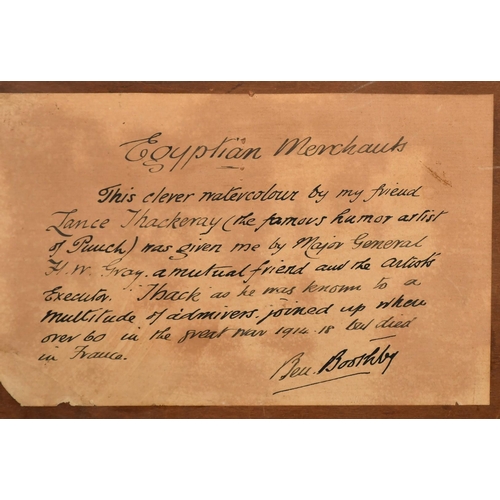 Egyptian Merchants
This clever watercolour by my friend
Lance Thackeray (the famous humor artist
of Punch) was given me by Major General
H. W. Gray. a mutual friend and the artists
Executor. "Thack" as he was known to a
multitude of admirers, joined up when
over 60 in the great war 1914-18 but died
in France.
Ben. Boothby